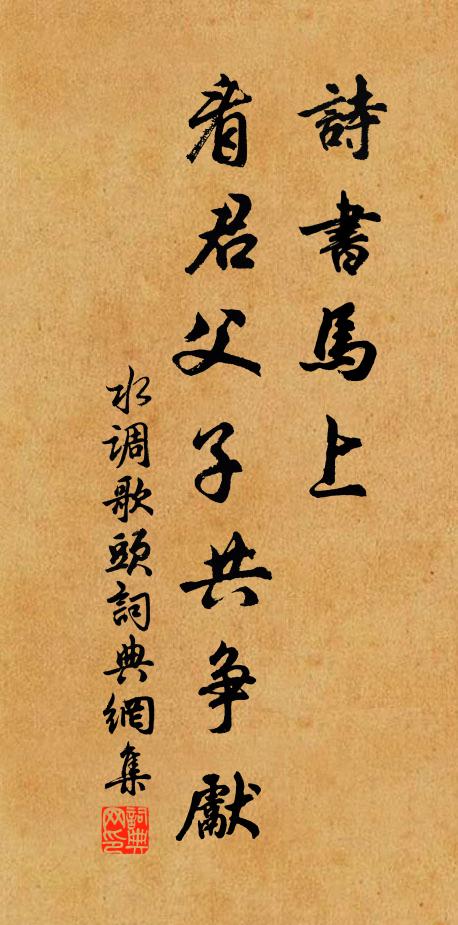 詩書馬上
看君父子共争獻
水调歌頭詞典網集
詞典网印